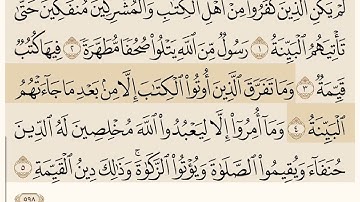 لَمْ يَكُنِ ٱلَّذِينَ كَفَرُوا۟ مِنْ أَهْلِ ٱلْكِتَٰبِ وَٱلْمُشْرِكِينَ مُنفَكِّينَ حَتَّىٰ
تَأْتِيَهُمُ ٱلْبَيِّنَةُ ١ رَسُولٌ مِّنَ ٱللَّهِ يَتْلُوا۟ صُحُفًا مُّطَهَّرَةً ٢ فِيهَا كُتُبٌ
قَيِّمَةٌ ٣ وَمَا تَفَرَّقَ ٱلَّذِينَ أُوتُوا۟ ٱلْكِتَٰبَ إِلَّا مِنۢ بَعْدِ مَا جَآءَتْهُمُ
ٱلْبَيِّنَةُ ٤ وَمَآ أُمِرُوٓا۟ إِلَّا لِيَعْبُدُوا۟ ٱللَّهَ مُخْلِصِينَ لَهُ ٱلدِّينَ
حُنَفَآءَ وَيُقِيمُوا۟ ٱلصَّلَوٰةَ وَيُؤْتُوا۟ ٱلزَّكَوٰةَ ۚ وَذَٰلِكَ دِينُ ٱلْقَيِّمَةِ ٥
٥٩٨